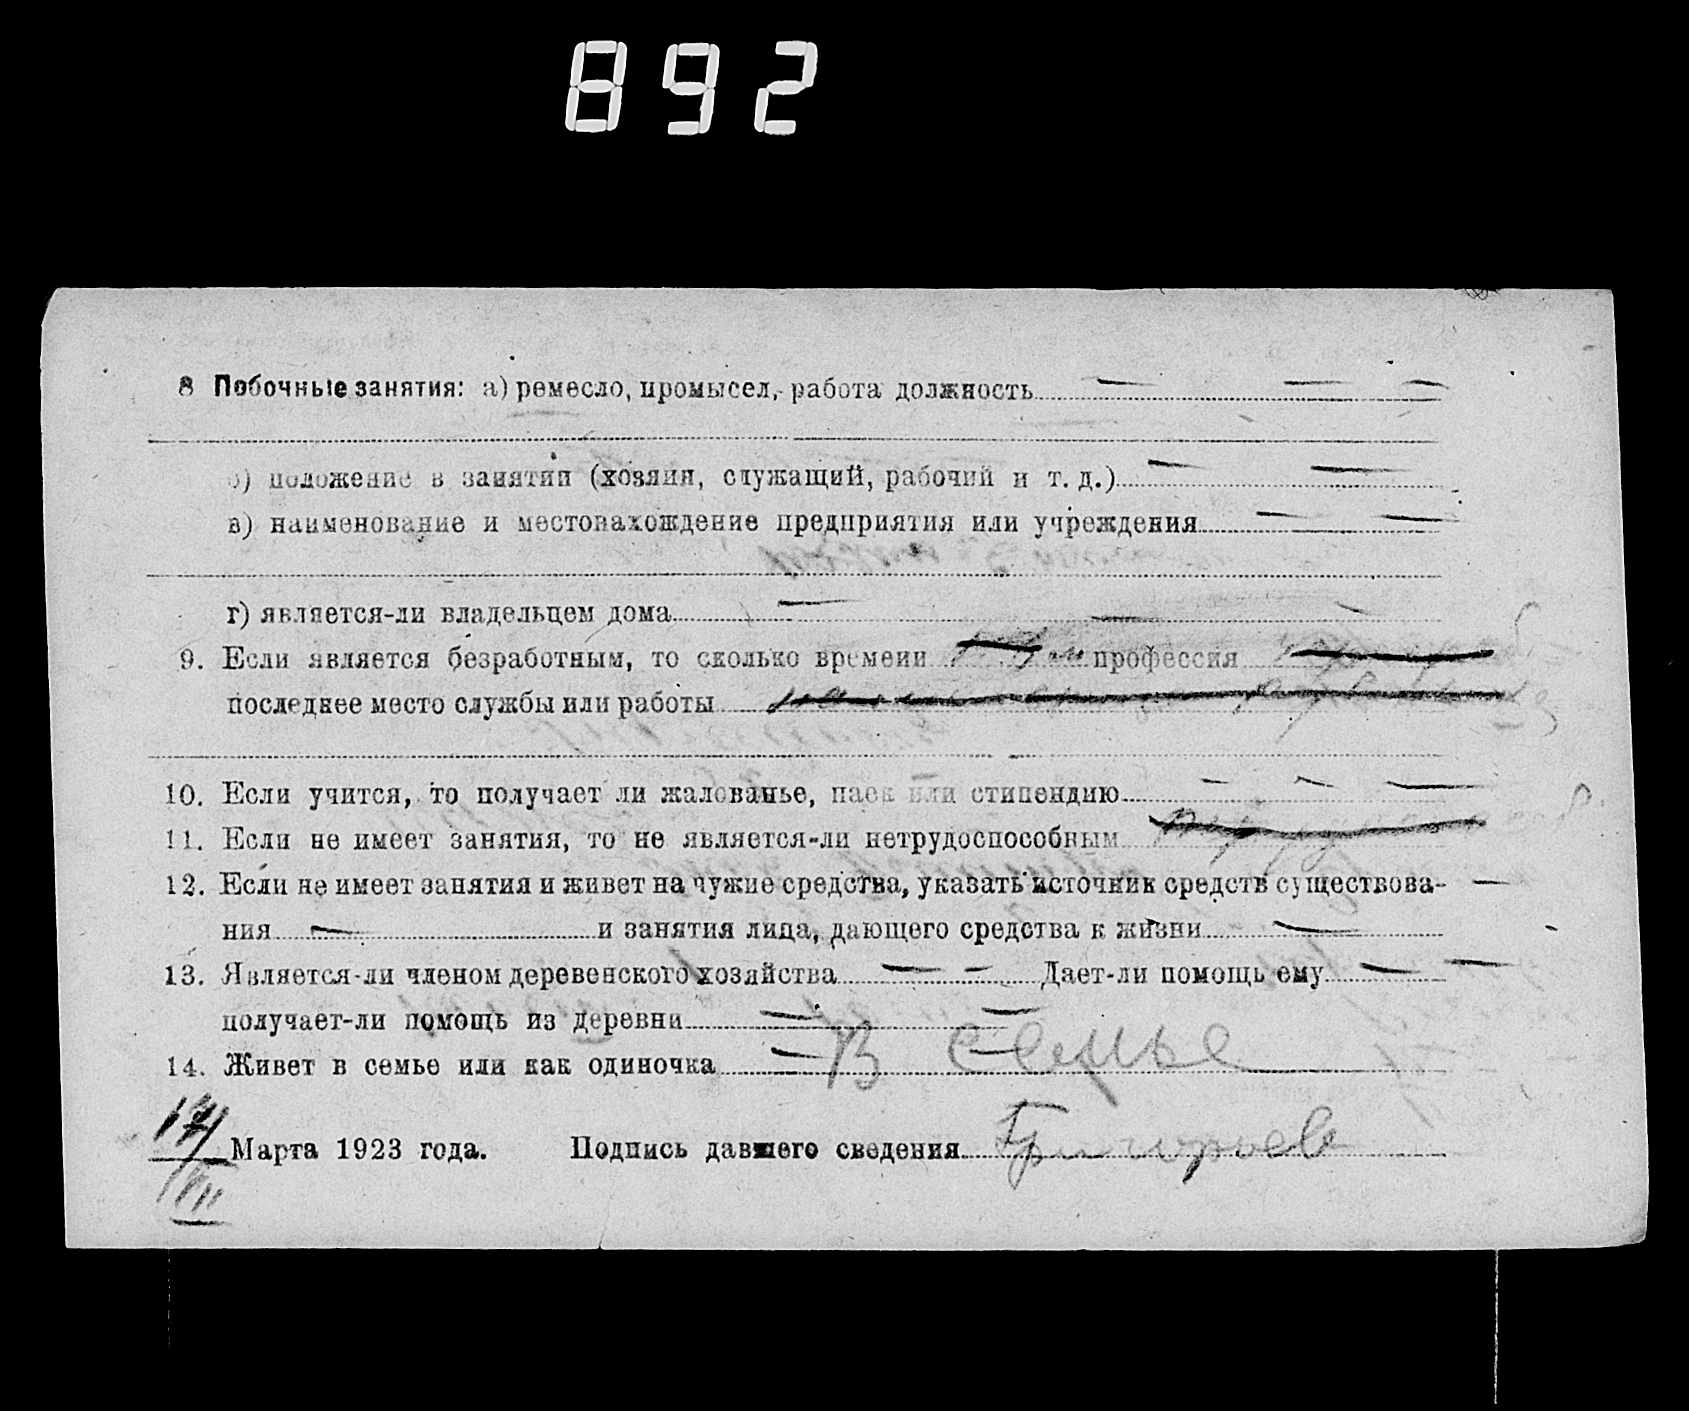 892
8 Побочные занятия: а) ремесло, промысел, работа должность — — —
б) положение в занятии (хозяин, служащий, рабочий и т. д.) — —
в) наименование и местонахождение предприятия или учреждения — —
г) является-ли владельцем дома — — —
9. Если является безработным, то сколько времени профессия
последнее место службы или работы
10. Если учится, то получает ли жалованье, паек или стипендию — — —
11. Если не имеет занятия, то не является-ли нетрудоспособным
12. Если не имеет занятия и живет на чужие средства, указать источник средств существова- —
ния — и занятия лица, дающего средства к жизни —
13. Является-ли членом деревенского хозяйства — — Дает-ли помощь ему — —
получает-ли помощь из деревни — —
14. Живет в семье или как одиночка — В семье
17/ Марта 1923 года. Подпись давшего сведения Григорьев
III